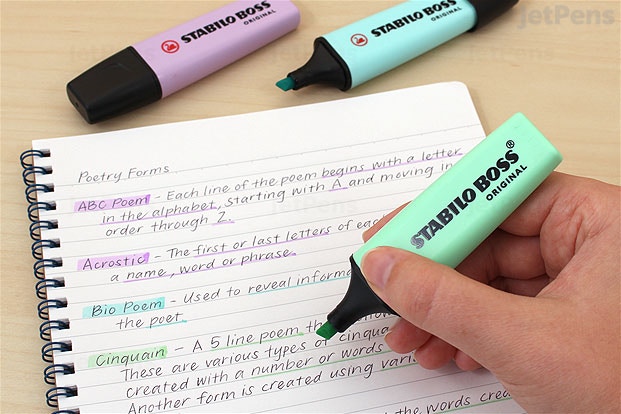 STABILO BOSS
ORIGINAL
STABILO BOSS
ORIGINAL
JetPens
Poetry Forms
ABC Poem - Each line of the poem begins with a letter
in the alphabet, starting with A and moving in
order through Z.
Acrostic - The first or last letters of
a name, word or phrase.
Bio Poem - Used to reveal
the poet.
Cinquain - A 5 line poem
These are various types of
created with a number or words
Another form is created using
the words
STABILO BOSS®
ORIGINAL